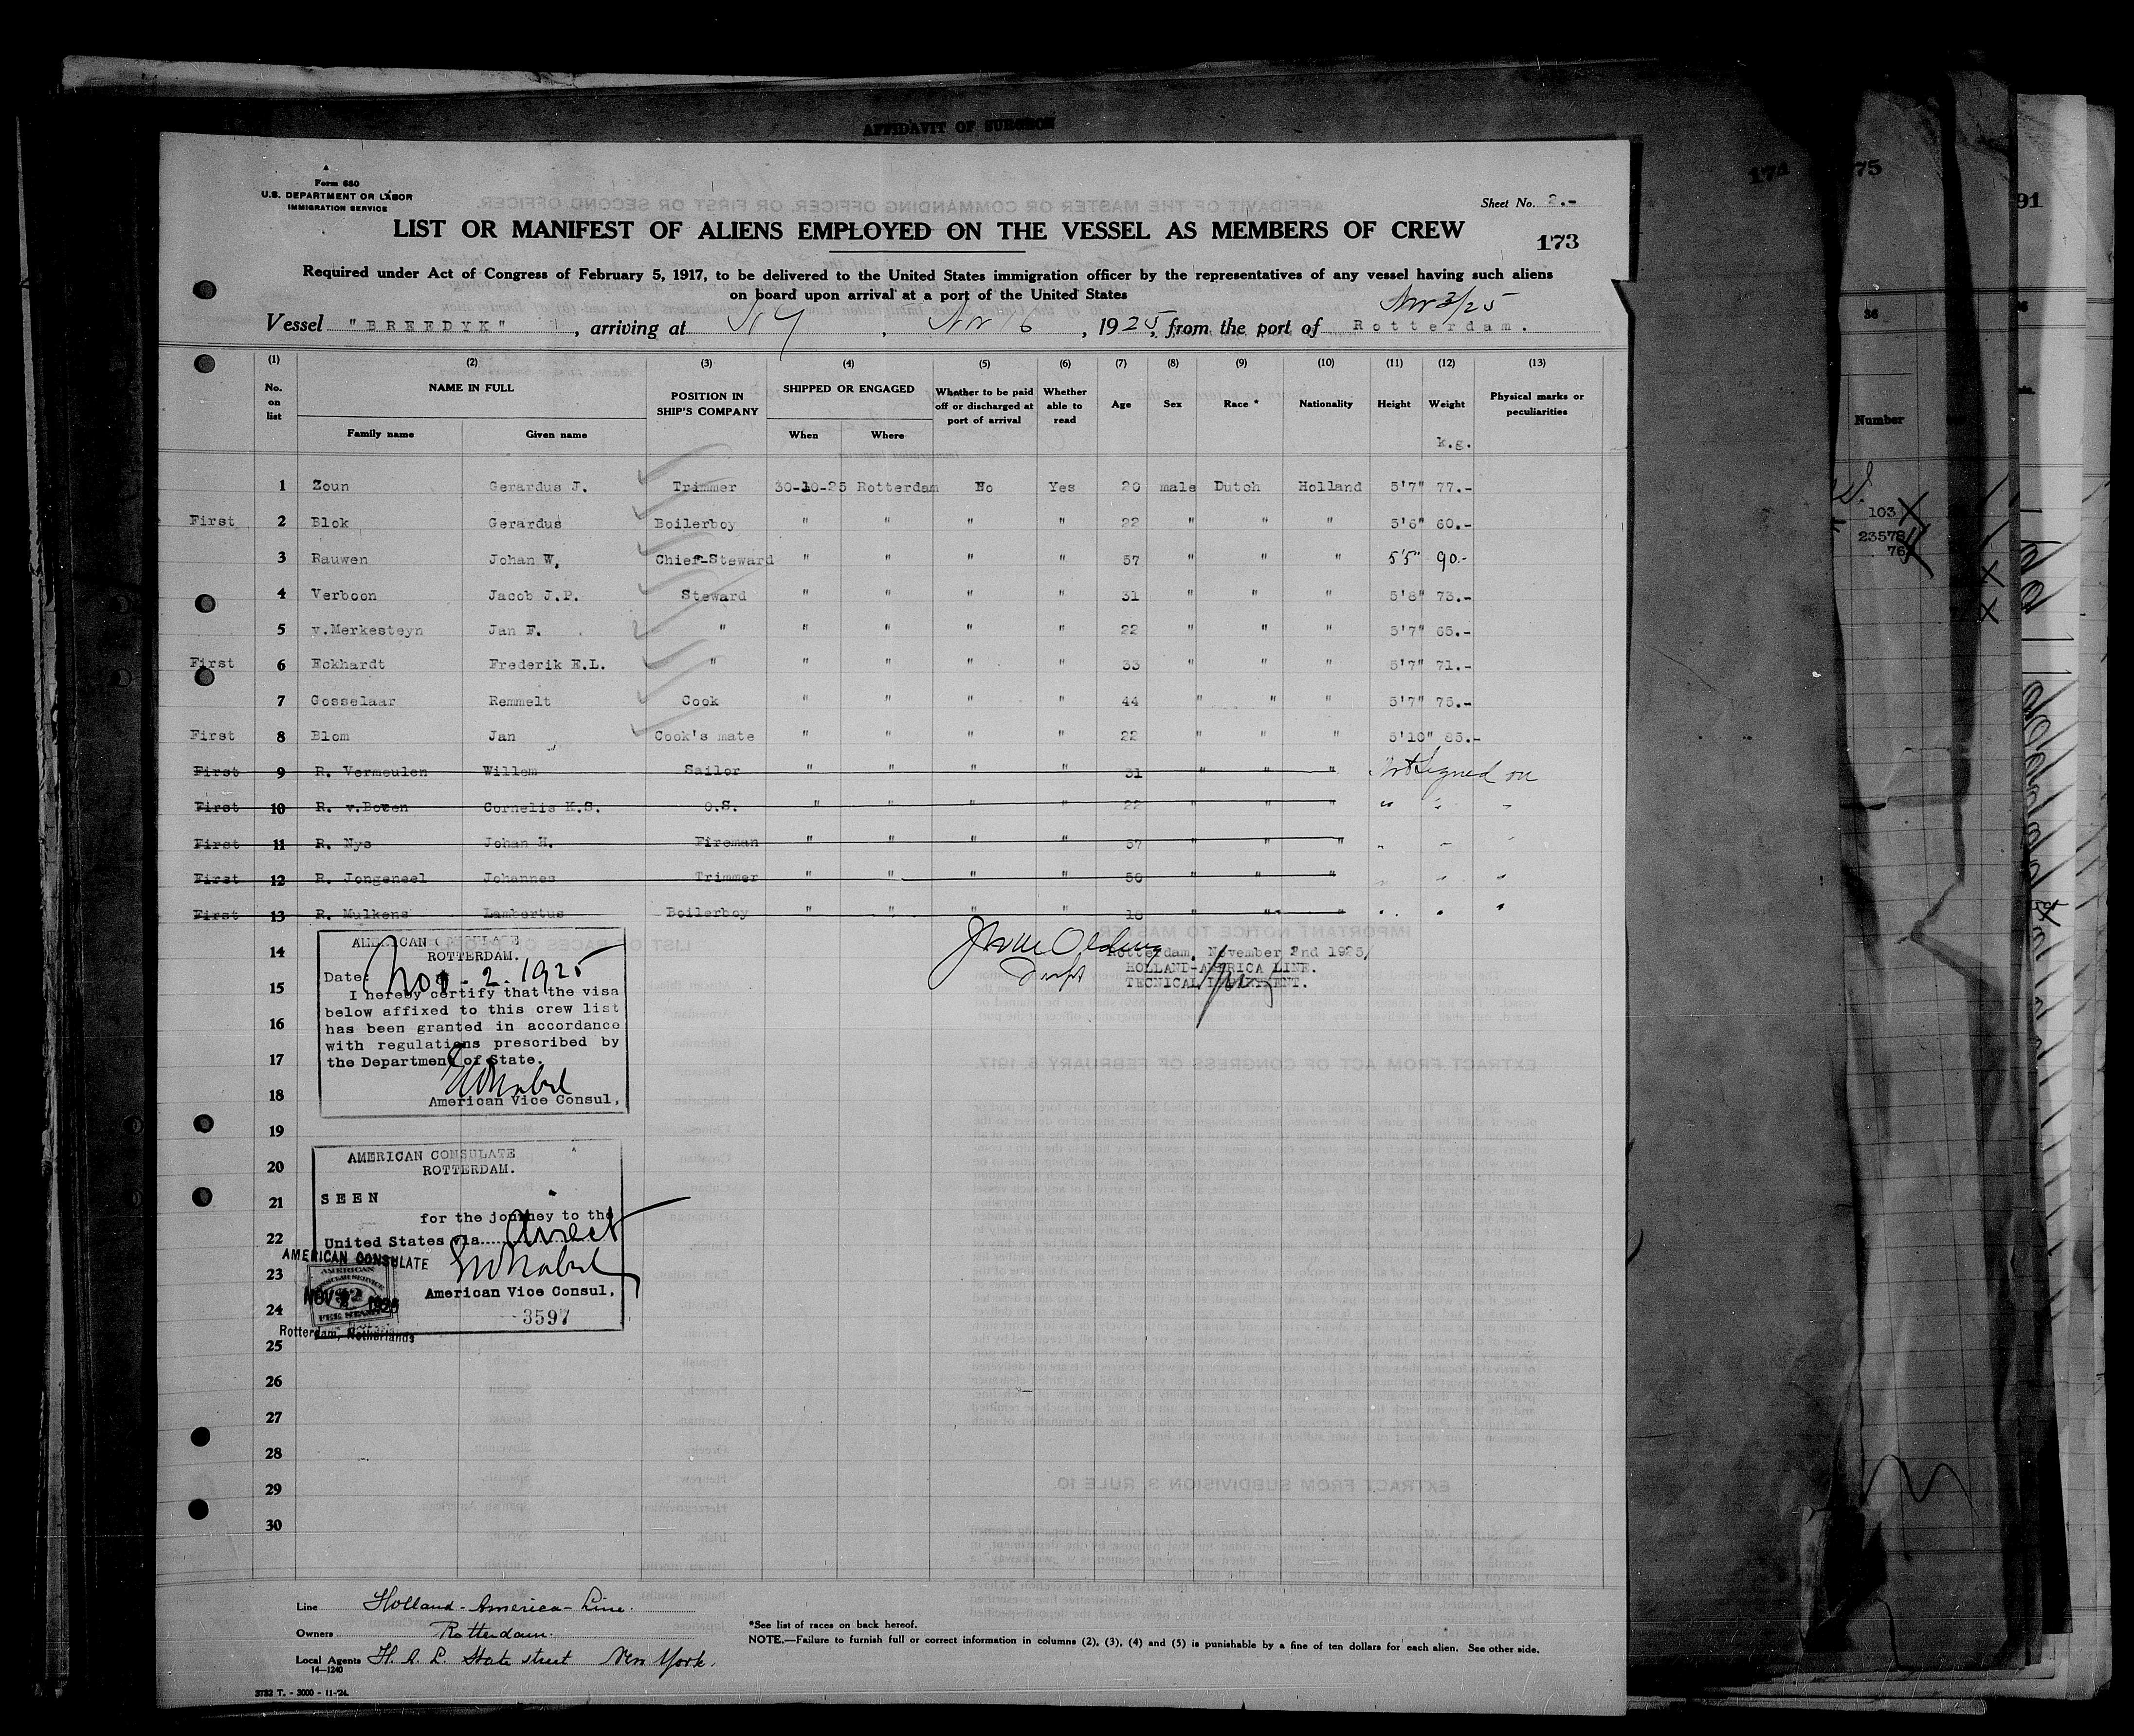 AFFIDAVIT OF SURGEON
Form 680
U.S. DEPARTMENT OF LABOR
IMMIGRATION SERVICE
Sheet No. 2.-
LIST OR MANIFEST OF ALIENS EMPLOYED ON THE VESSEL AS MEMBERS OF CREW
173
Required under Act of Congress of February 5, 1917, to be delivered to the United States immigration officer by the representatives of any vessel having such aliens
on board upon arrival at a port of the United States
Nov 3/25
Vessel "BREEDYK", arriving at NY, Nov 6, 1925, from the port of Rotterdam.
(1) (2) (3) (4) (5) (6) (7) (8) (9) (10) (11) (12) (13)
No. on list NAME IN FULL POSITION IN SHIP'S COMPANY SHIPPED OR ENGAGED Whether to be paid off or discharged at port of arrival Whether able to read Age Sex Race * Nationality Height Weight Physical marks or peculiarities
Family name Given name When Where k.g.
1 Zoun Gerardus J. Trimmer 30-10-25 Rotterdam No Yes 20 male Dutch Holland 5'7" 77.-
First 2 Blok Gerardus Boilerboy " " " " 22 " " " 5'6" 60.-
3 Rauwen Johan W. Chief-Steward " " " " 57 " " " 5'5" 90.-
4 Verboon Jacob J.P. Steward " " " " 31 " " " 5'8" 73.-
5 v.Merkesteyn Jan F. " " " " " 22 " " " 5'7" 65.-
First 6 Eckhardt Frederik E.L. " " " " " 33 " " " 5'7" 71.-
7 Gosselaar Remmelt Cook " " " " 44 " " " 5'7" 75.-
First 8 Blom Jan Cook's mate " " " " 22 " " " 5'10" 83.-
First 9 R. Vermeulen Willem Sailor " " " " 31 " " " Not signed on
First 10 R. v.Boven Cornelis K.S. O.S. " " " " 22 " " " " " "
First 11 R. Nys Johan H. Fireman " " " " 37 " " " " " "
First 12 R. Jongeneel Johannes Trimmer " " " " 50 " " " " " "
First 13 R. Mulkens Lambertus Boilerboy " " " " 18 " " " " " "
14
15
16
17
18
19
20
21
22
23
24
25
26
27
28
29
30
AMERICAN CONSULATE
ROTTERDAM.
Date: Nov - 2. 1925
I hereby certify that the visa
below affixed to this crew list
has been granted in accordance
with regulations prescribed by
the Department of State.
American Vice Consul,
Rotterdam, November 2nd 1925/
HOLLAND-AMERICA LINE.
TECNICAL DEPARTMENT.
AMERICAN CONSULATE
ROTTERDAM.
SEEN
for the journey to the
United States via direct
American Vice Consul,
3597
AMERICAN CONSULATE
AMERICAN
CONSULAR SERVICE
FEE STAMP
NOV 2 1925
Rotterdam, Netherlands
Line Holland-America-Line.
Owners Rotterdam.
Local Agents H. A. L. State street New York.
14—1240
*See list of races on back hereof.
NOTE.—Failure to furnish full or correct information in columns (2), (3), (4) and (5) is punishable by a fine of ten dollars for each alien. See other side.
3732 T. - 3000 - 11-'24.
174
75
91
36
Number
103
23578
76